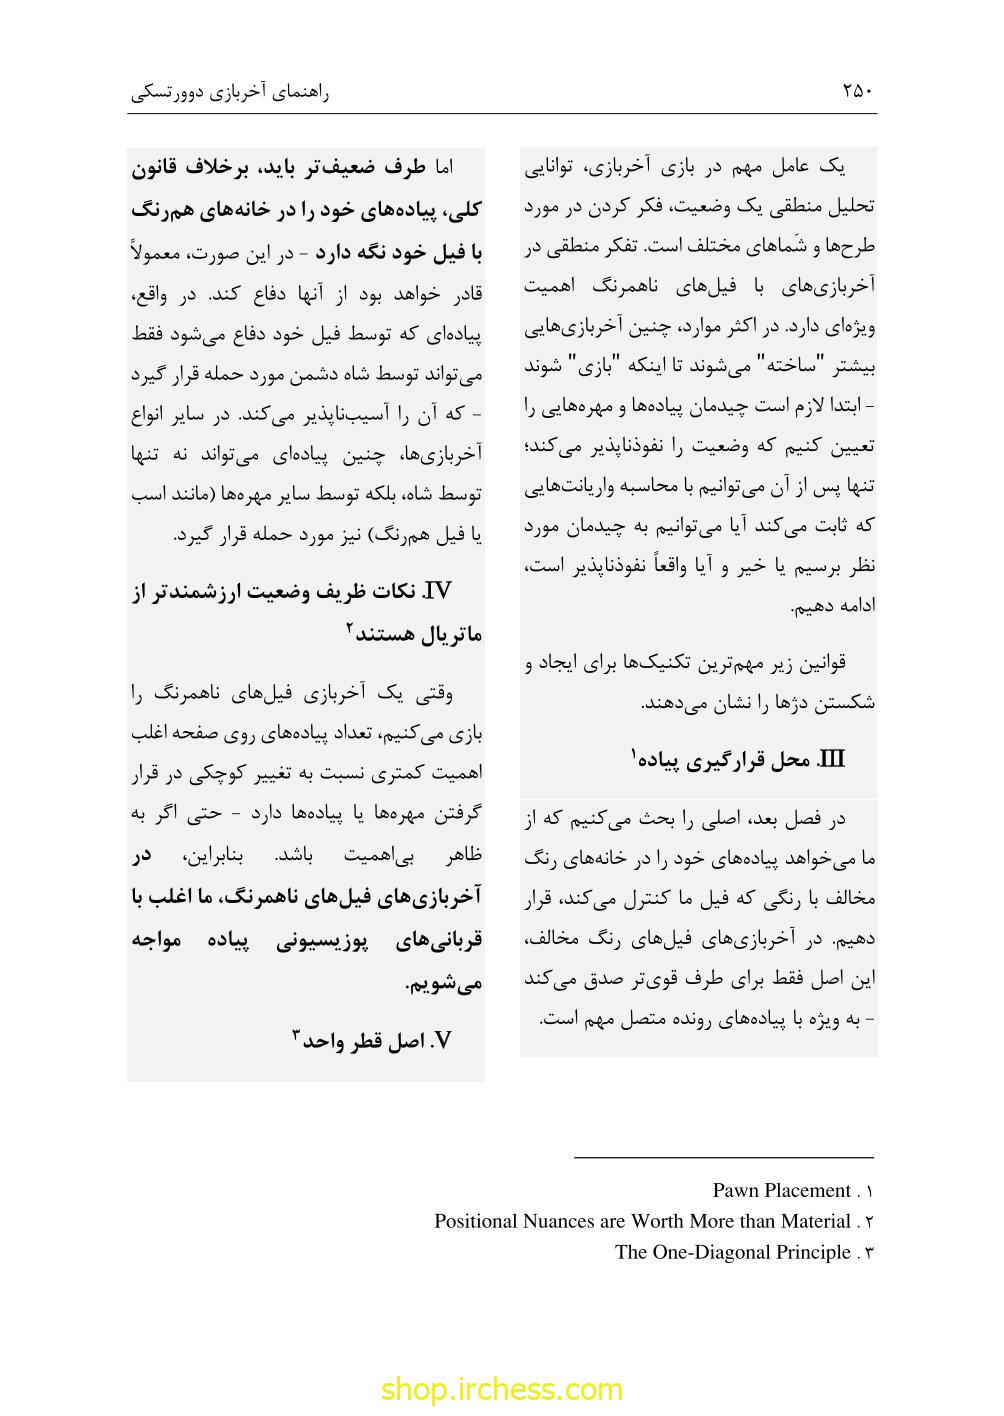 ۲۵۰
راهنمای آخربازی دوورتسکی
یک عامل مهم در بازی آخربازی، توانایی
تحلیل منطقی یک وضعیت، فکر کردن در مورد
طرح‌ها و شَماهای مختلف است. تفکر منطقی در
آخربازی‌های با فیل‌های ناهمرنگ اهمیت
ویژه‌ای دارد. در اکثر موارد، چنین آخربازی‌هایی
بیشتر "ساخته" می‌شوند تا اینکه "بازی" شوند
- ابتدا لازم است چیدمان پیاده‌ها و مهره‌هایی را
تعیین کنیم که وضعیت را نفوذناپذیر می‌کند؛
تنها پس از آن می‌توانیم با محاسبه واریانت‌هایی
که ثابت می‌کند آیا می‌توانیم به چیدمان مورد
نظر برسیم یا خیر و آیا واقعاً نفوذناپذیر است،
ادامه دهیم.
قوانین زیر مهم‌ترین تکنیک‌ها برای ایجاد و
شکستن دژها را نشان می‌دهند.
III. محل قرارگیری پیاده۱
در فصل بعد، اصلی را بحث می‌کنیم که از
ما می‌خواهد پیاده‌های خود را در خانه‌های رنگ
مخالف با رنگی که فیل ما کنترل می‌کند، قرار
دهیم. در آخربازی‌های فیل‌های رنگ مخالف،
این اصل فقط برای طرف قوی‌تر صدق می‌کند
- به ویژه با پیاده‌های رونده متصل مهم است.
اما طرف ضعیف‌تر باید، برخلاف قانون
کلی، پیاده‌های خود را در خانه‌های هم‌رنگ
با فیل خود نگه دارد - در این صورت، معمولاً
قادر خواهد بود از آنها دفاع کند. در واقع،
پیاده‌ای که توسط فیل خود دفاع می‌شود فقط
می‌تواند توسط شاه دشمن مورد حمله قرار گیرد
- که آن را آسیب‌ناپذیر می‌کند. در سایر انواع
آخربازی‌ها، چنین پیاده‌ای می‌تواند نه تنها
توسط شاه، بلکه توسط سایر مهره‌ها (مانند اسب
یا فیل هم‌رنگ) نیز مورد حمله قرار گیرد.
IV. نکات ظریف وضعیت ارزشمندتر از
ماتریال هستند۲
وقتی یک آخربازی فیل‌های ناهمرنگ را
بازی می‌کنیم، تعداد پیاده‌های روی صفحه اغلب
اهمیت کمتری نسبت به تغییر کوچکی در قرار
گرفتن مهره‌ها یا پیاده‌ها دارد - حتی اگر به
ظاهر بی‌اهمیت باشد. بنابراین، در
آخربازی‌های فیل‌های ناهمرنگ، ما اغلب با
قربانی‌های پوزیسیونی پیاده مواجه
می‌شویم.
V. اصل قطر واحد۳
۱ . Pawn Placement
۲ . Positional Nuances are Worth More than Material
۳ . The One-Diagonal Principle
shop.irchess.com